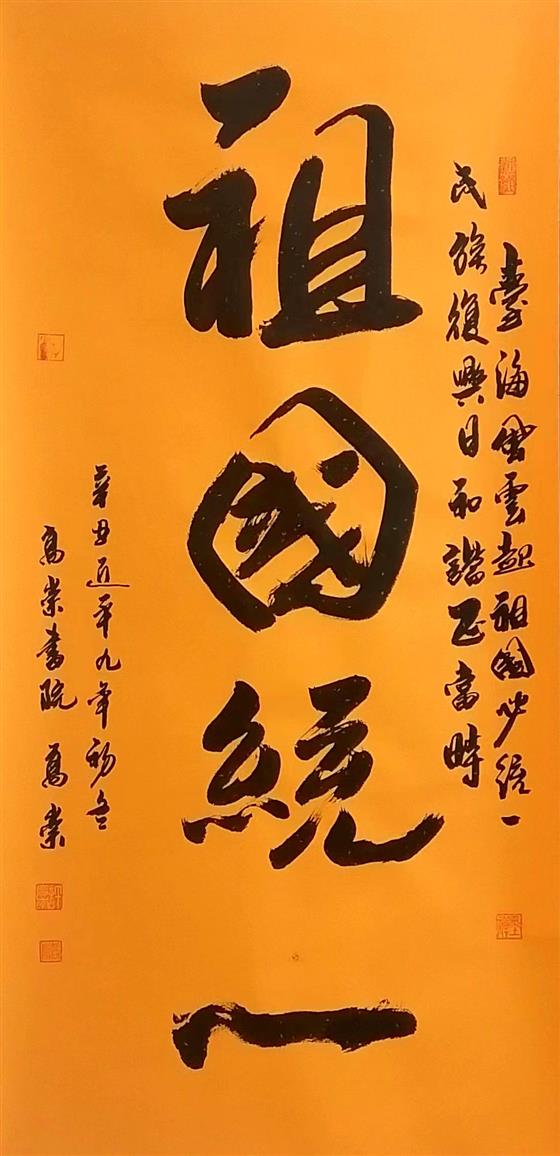 臺海風雲起祖國必統一
民族復興日和諧正當時
祖國統一
辛丑近平九年初冬
高崇書院 高崇